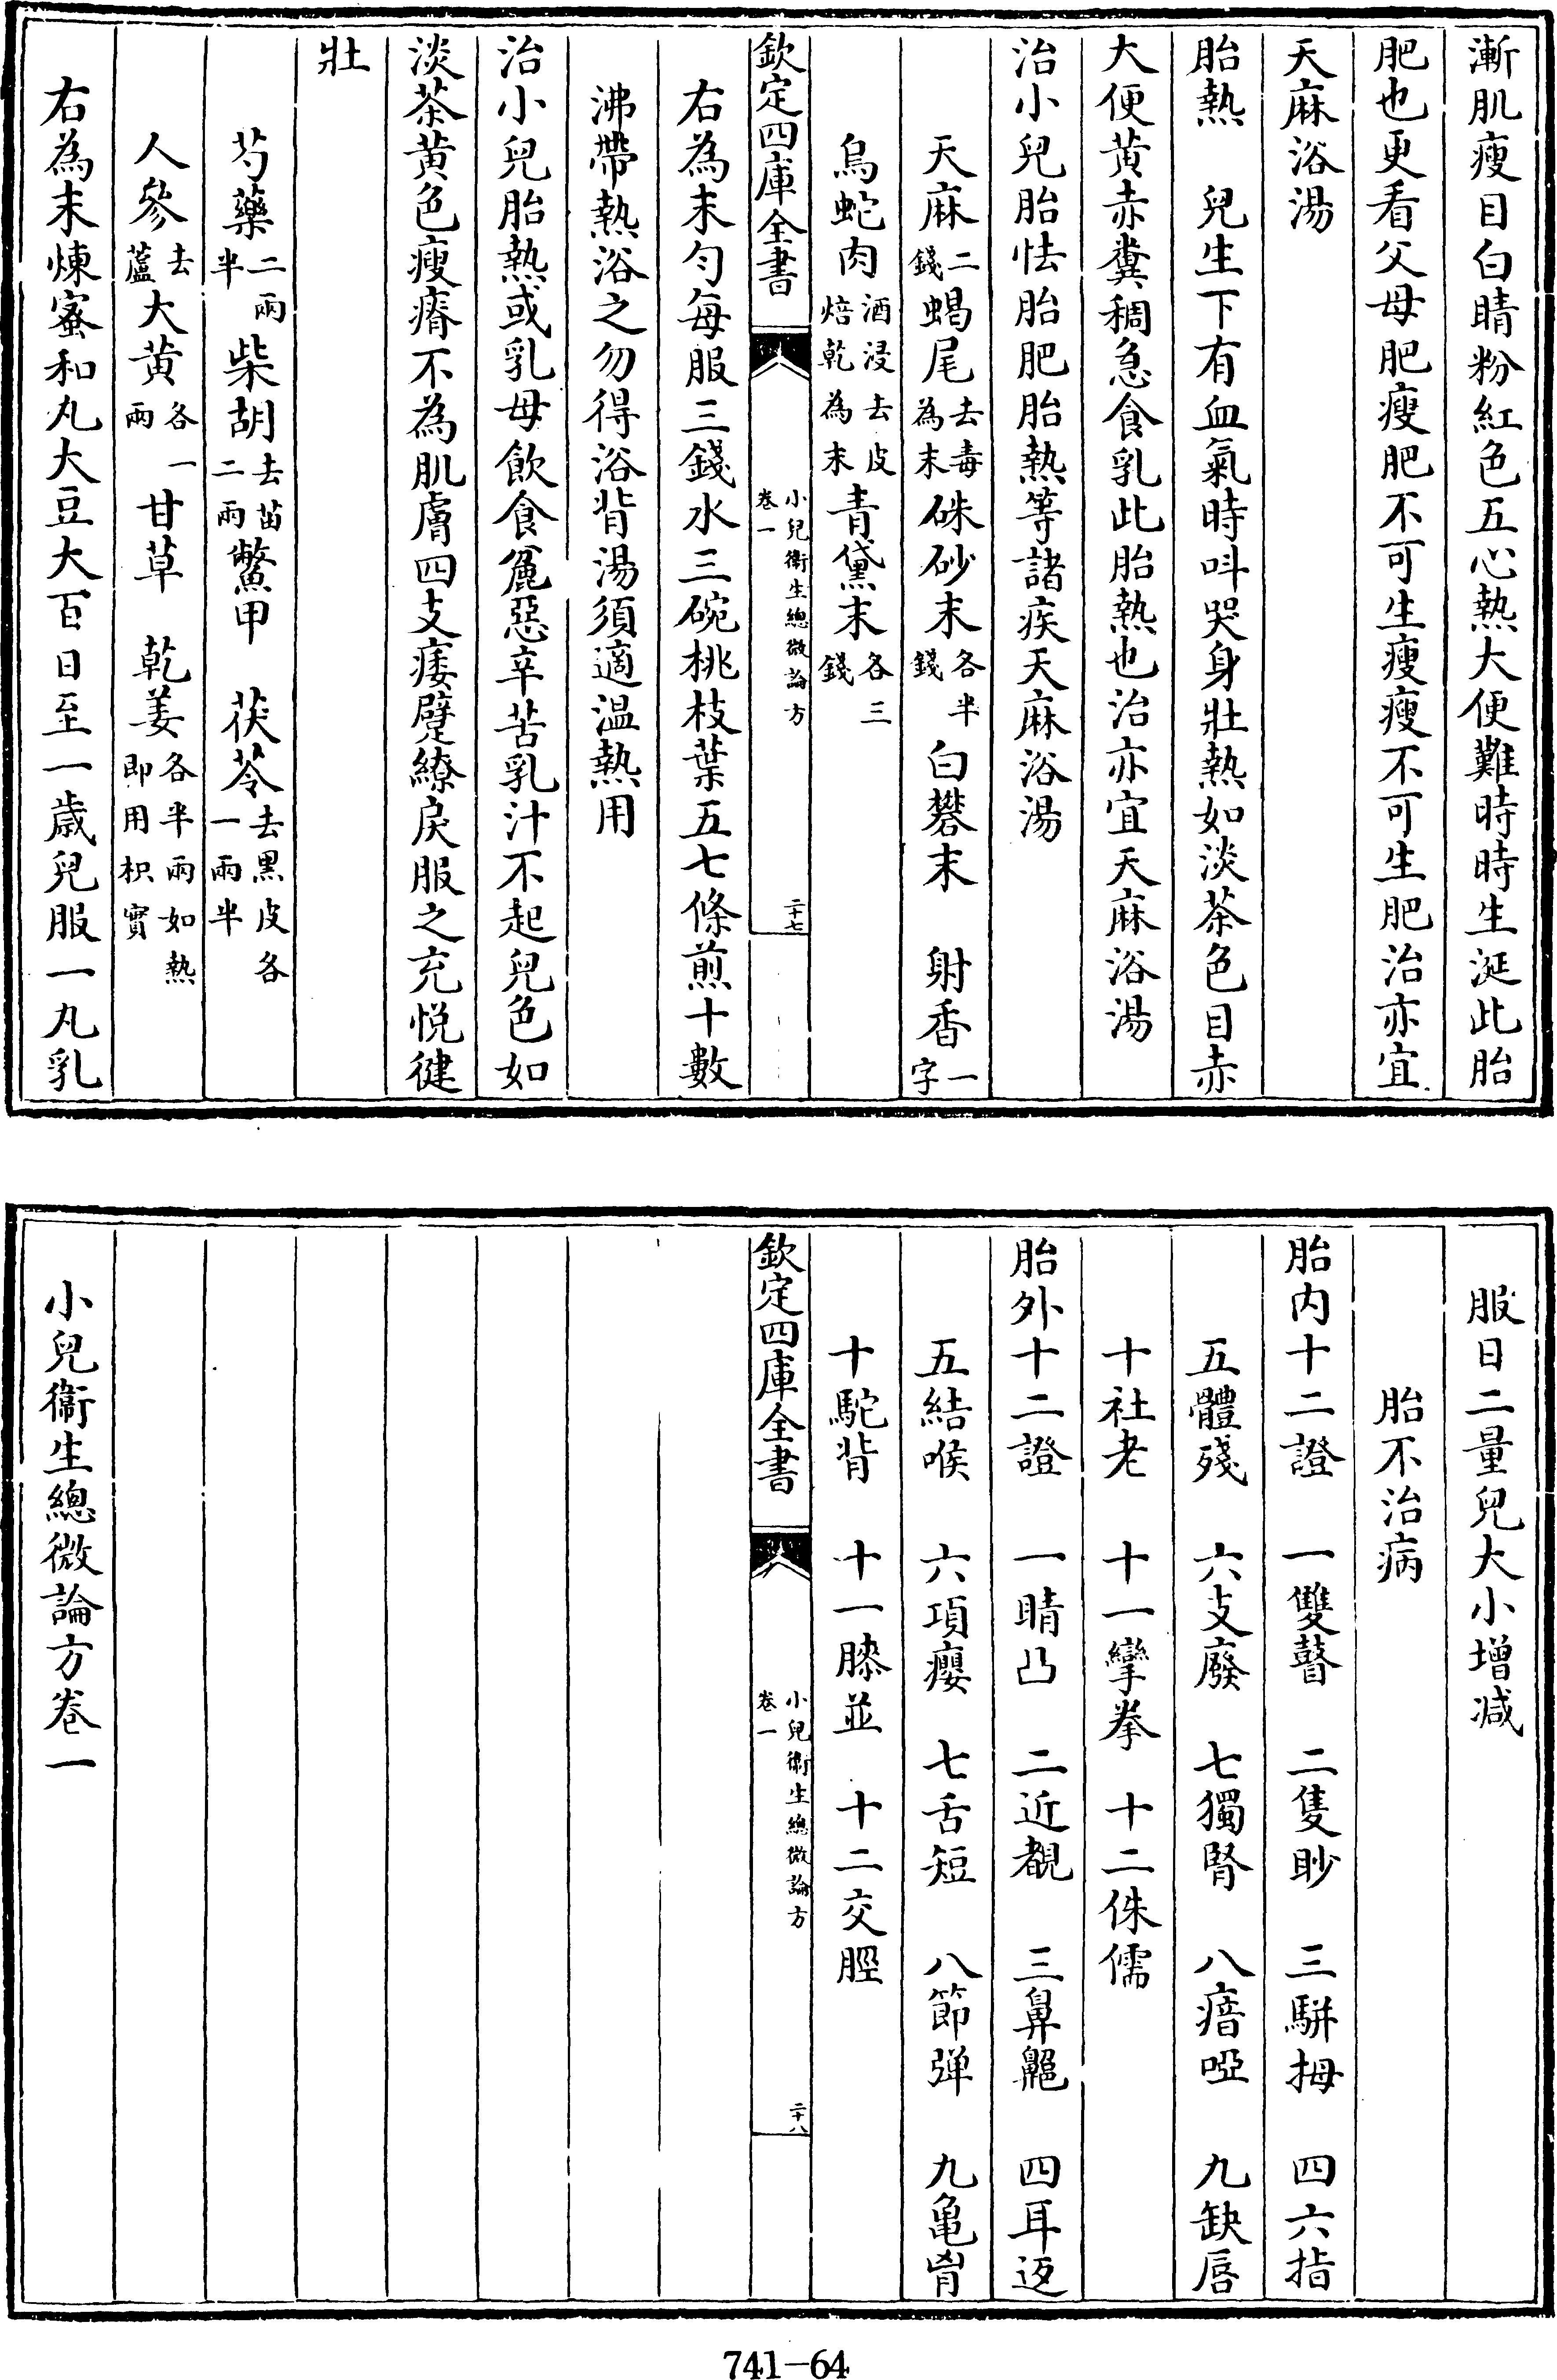 漸肌瘦目白睛粉紅色五心熱大便難時時生涎此胎
肥也更看父母肥瘦肥不可生瘦瘦不可生肥治亦宜
天麻浴湯
胎熱 兒生下有血氣時呌哭身壯熱如淡茶色目赤
大便黄赤糞稠急食乳此胎熱也治亦宜天麻浴湯
治小兒胎怯胎肥胎熱等諸疾天麻浴湯
天麻二錢蝎尾去毒為末硃砂末各半錢白礬末 射香一字
烏蛇肉酒浸去皮焙乾為末青黛末各三錢
欽定四庫全書
小兒衞生總微論方
卷一
二十七
右為末勻每服三錢水三碗桃枝葉五七條煎十數
沸帶熱浴之勿得浴背湯須適温熱用
治小兒胎熱或乳母飲食麄惡辛苦乳汁不起兒色如
淡茶黄色瘦瘠不為肌膚四支痿躄繚戾服之充悦健
壯
芍藥二兩半柴胡去苗二兩鱉甲 茯苓去黑皮各一兩半
人參去蘆大黄各一兩甘草 乾姜各半兩如熱即用枳實
右為末煉蜜和丸大豆大百日至一歲兒服一丸乳
服日二量兒大小增减
胎不治病
胎内十二證 一雙瞽 二隻眇 三駢拇 四六指
五體殘 六支廢 七獨腎 八瘖啞 九缺唇
十社老 十一攣拳 十二侏儒
胎外十二證 一睛凸 二近覩 三鼻齆 四耳返
五結喉 六項癭 七舌短 八節彈 九龜胷
十駝背 十一膝並 十二交脛
欽定四庫全書
小兒衞生總微論方
卷一
二十八
小兒衞生總微論方卷一
741-64